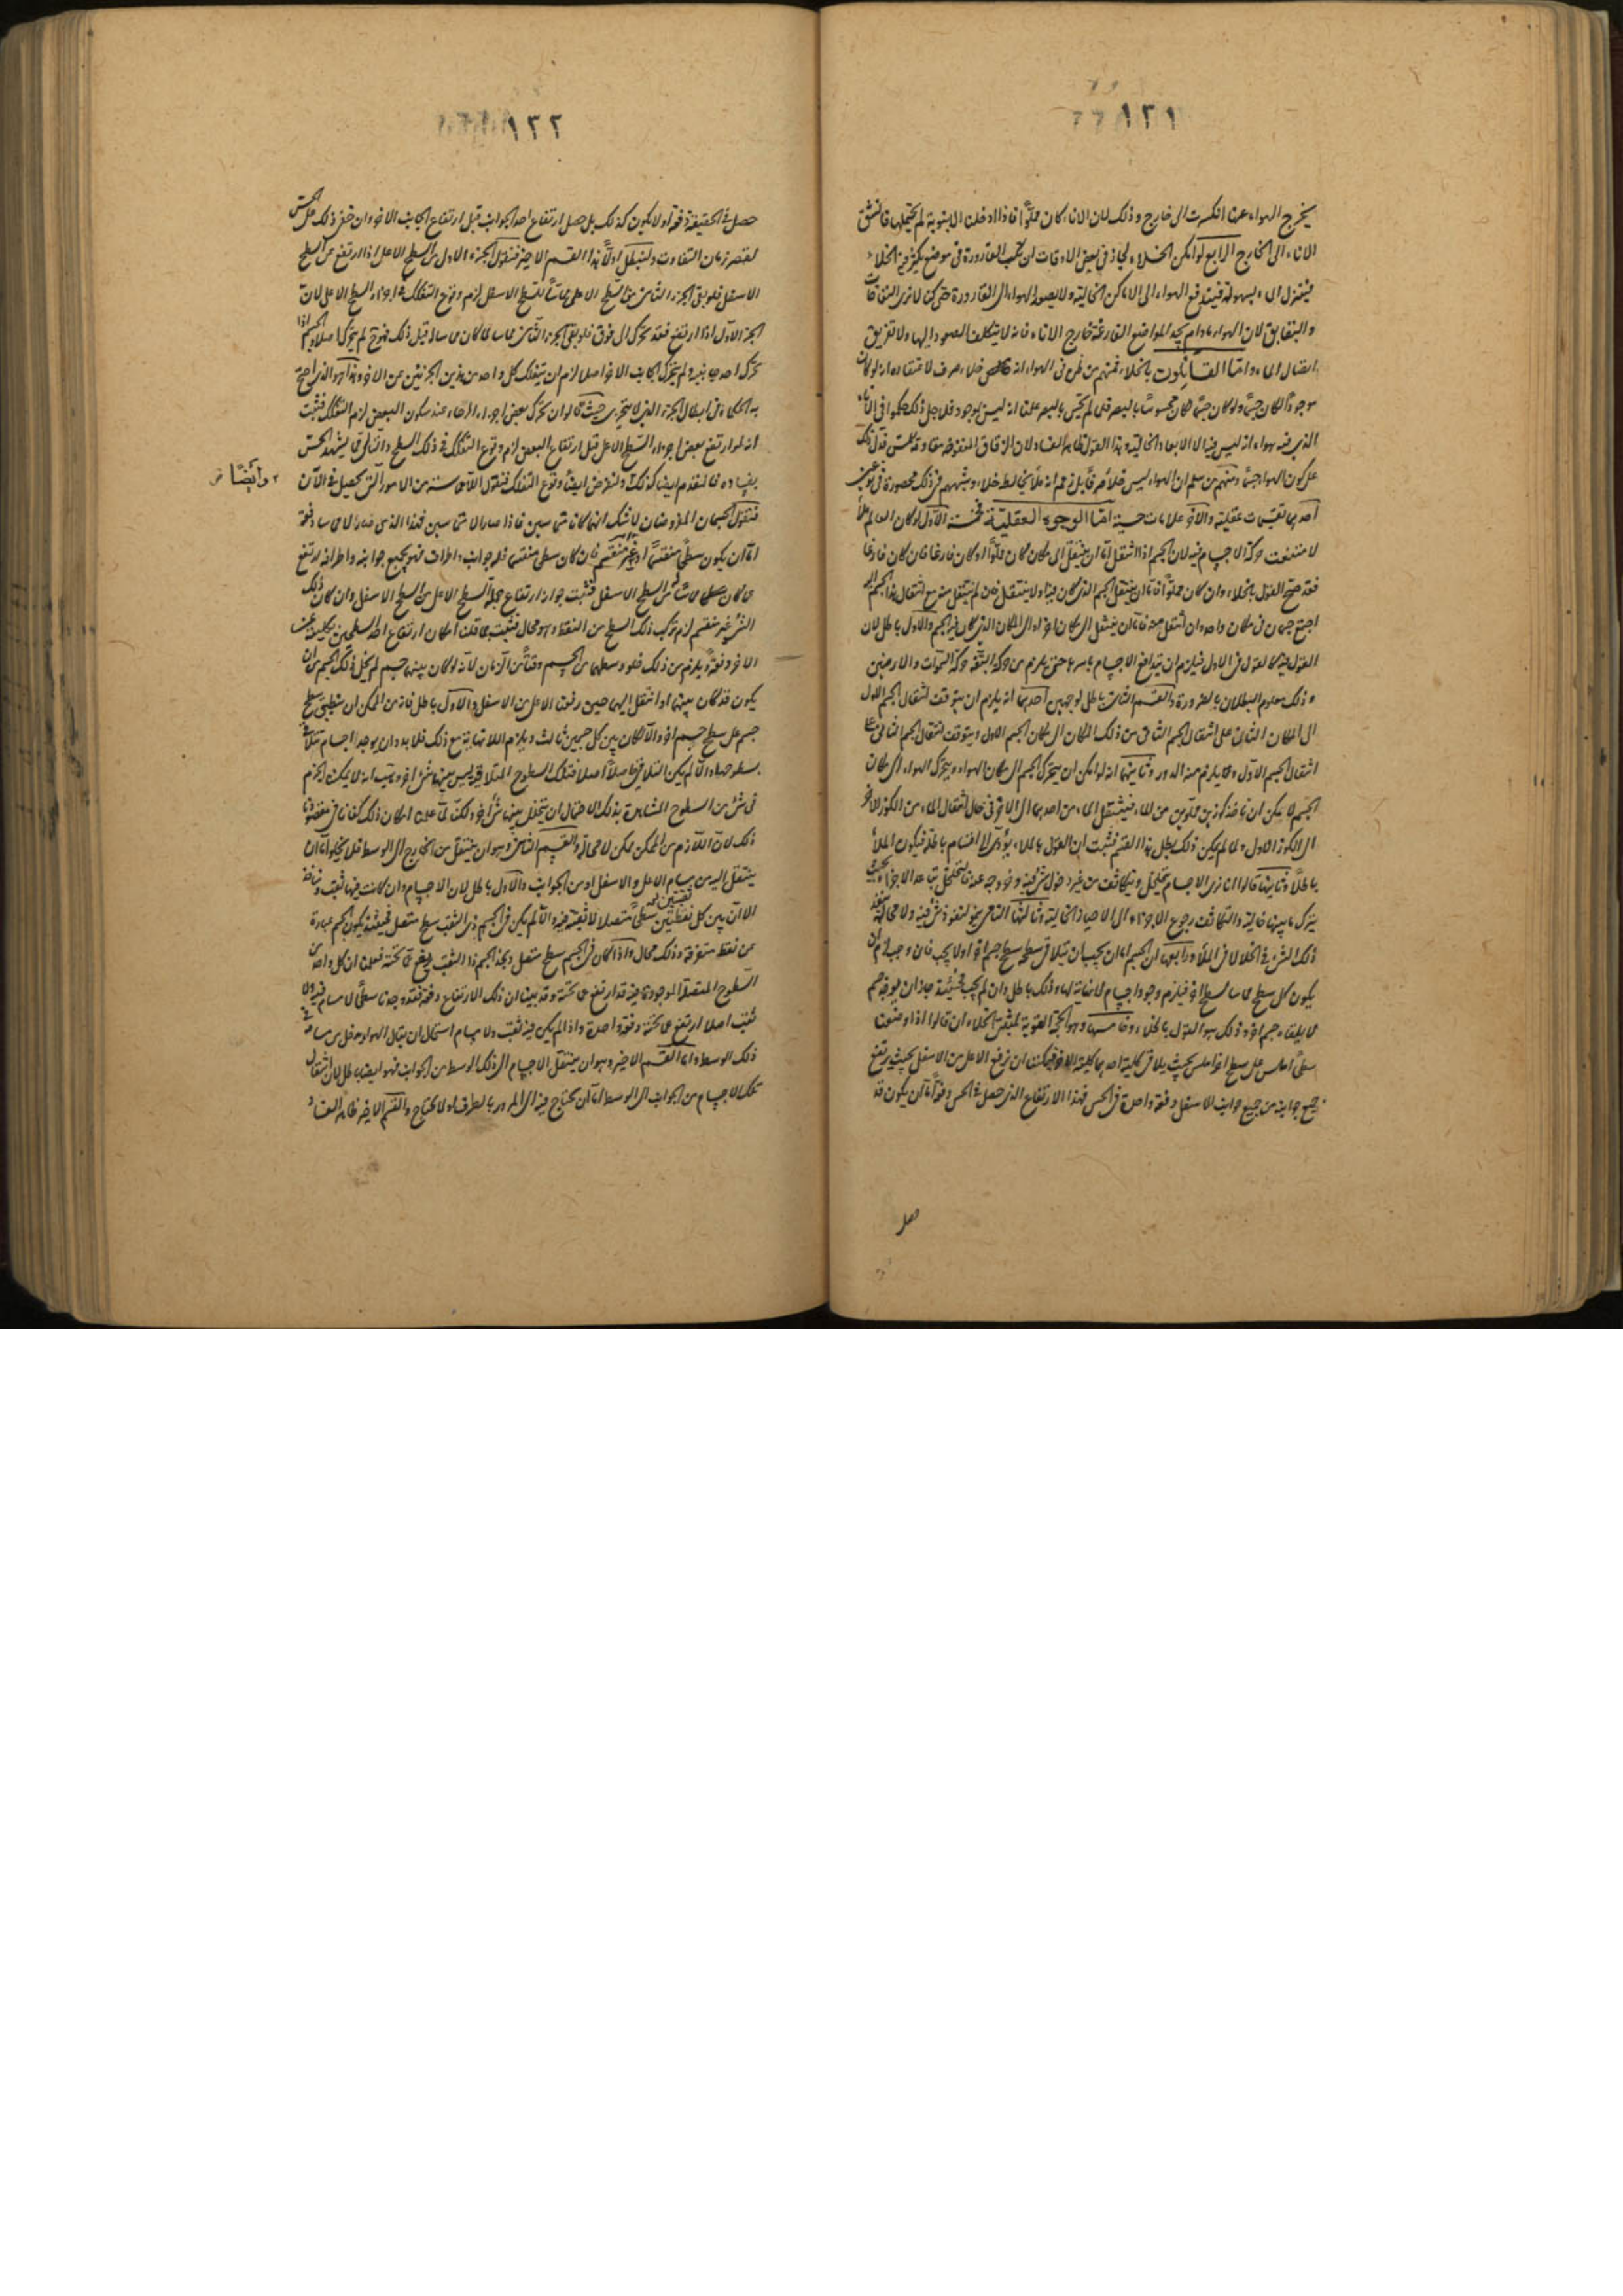 ١٢١
يخرج الهواء عنها انكسرت الى خارج وذلك لان الاناء كان مملوًّا فاذا ادخلنا الانبوبة لم يحتملها فانشق
الاناء الى الخارج الرابع لو امكن الخلاء لجاز فى بعض الاوقات ان تكب القارورة فى موضع يكثر فيه الخلاء
فينزل الماء بسهولة فيندفع الهواء الى الاماكن الخالية ولا يصعد الهواء الى القارورة حتى كنا لا نرى النفاخات
والبقابق لان الهواء ما دام يجد المواضع الفارغة خارج الاناء فانه لا يتكلف الصعود اليها ولا تزيق
انتقال الماء واما القائلون بالخلاء فمنهم من ظن فى الهواء انه خلاء صرف لاعتقاده انه لو كان
موجودًا لكان جسمًا ولو كان جسمًا لكان محسوسًا بالبصر فلما لم يحس بالبصر علمنا انه ليس بموجود فلاجل ذلك حكموا فى الاناء
الذى فيه هواء انه ليس فيه الا الابعاد الخالية وهذا القول ظاهر الفساد لان الزقاق المنفوخة مقاومة للمس فدل ذلك
على كون الهواء جسمًا ومنهم من سلم ان الهواء ليس خلاء صرفًا بل زعم انه ملأ يخالطه خلاء وشبههم فى ذلك محصورة فى نوعين
احدهما تقسيمات عقلية والآخر علامات حسية اما الوجوه العقلية فخمسة الاول لو كان العالم ملأً
لامتنعت حركة الاجسام فيه لان الجسم اذا انتقل اما ان ينتقل الى مكان كان مملوًّا او كان فارغا فان كان فارغا
فقد صح القول بالخلاء وان كان مملوًّا فاما ان ينتقل الجسم الذى كان فيه او لا ينتقل فان لم ينتقل منه مع انتقال هذا الجسم اليه
اجتمع جسمان فى مكان واحد وان انتقل منه فاما ان ينتقل الى مكان آخر او الى المكان الذى كان فيه الجسم والاول باطل لان
القول فيه كالقول فى الاول فيلزم ان تتدافع الاجسام باسرها حتى يلزم من حركة البقة حركة السموات والارضين
وذلك معلوم البطلان بالضرورة والقسم الثانى باطل لوجهين احدهما انه يلزم ان يتوقف انتقال الجسم الاول
الى المكان الثانى على انتقال الجسم الثانى من ذلك المكان الى مكان الجسم الاول ويتوقف انتقال الجسم الثانى على
انتقال الجسم الاول وما يلزم منه الدور وثانيهما انه لو امكن ان يتحرك الجسم الى مكان الهواء ويتحرك الهواء الى مكان
الجسم لامكن ان ناخذ كوزين مملوين من الماء فينتقل الماء من احدهما الى الآخر فى حال انتقال الماء من الكوز الآخر
الى الكوز الاول ولما لم يكن ذلك بطل هذا القسم فثبت ان القول بالملاء يؤدى الى اقسام باطلة فيكون الملأ
باطلًا وثانيها قالوا انا نرى الاجسام يتخلخل ويتكاثف من غير دخول شىء فيه وخروجه عنه فالتخلخل تباعد الاجزاء بحيث
يترك ما بينها خالية والتكاثف رجوع الاجزاء الى الاحياز الخالية وثالثها النامى ينمو لنفوذ شىء فيه ولا محالة ينفذ
ذلك الشىء فى الخلاء لا فى الملأ ورابعها ان الجسم اما ان يجب ان يتلاقى سطحه سطح جسم آخر او لا يجب فان وجب لزم ان
يكون كل سطح مماسا لسطح آخر فيلزم وجود اجسام لا نهاية لها وذلك باطل وان لم يجب فحينئذ جاز ان يوجد جسم
لا يلقاه جسم آخر وذلك هو القول بالخلاء وخامسها وهو الحجة القوية لمثبتى الخلاء ان قالوا اذا وضعنا
سطحًا املس على سطح آخر املس بحيث يلاقى كلية احدهما كلية الآخر فيمكننا ان نرفع الاعلى من الاسفل بحيث يرتفع
جميع جوانبه من جميع جوانب الاسفل دفعة واحدة فى الحس فهذا الارتفاع الذى حصل فى الحس دفعةً اما ان يكون قد
حصل
١٢٢
حصل فى الحقيقة دفعة او لا يكون كذلك بل حصل ارتفاع احد الجوانب قبل ارتفاع الجانب الآخر وان خفى ذلك على الحس
لقصر زمان التفاوت ولنبطل اولًا هذا القسم الاخير فنقول الجزء الاول من السطح الاعلى اذا ارتفع عن السطح
الاسفل فلو بقى الجزء الثانى من السطح الاعلى مماسًا للسطح الاسفل لزم وقوع التفكك فى اجزاء السطح الاعلى لان
الجزء الاول اذا ارتفع فقد تحرك الى فوق فلو بقى الجزء الثانى مماسا لما كان مماسا له قبل ذلك فهو لم يتحرك اصلا والجسم اذا
تحرك احد جانبيه ولم يتحرك الجانب الآخر اصلا لزم ان يتفكك كل واحد من هذين الجزئين عن الآخر وهذا هو الذى احتج
به الحكماء فى ابطال الجزء الذى لا يتجزى حيث قالوا ان تحرك بعض اجزاء الرحاء عند سكون البعض لزم التفكك فثبت
انه لو ارتفع بعض اجزاء السطح الاعلى قبل ارتفاع البعض لزم وقوع التفكك فى ذلك السطح والتالى مما يشهد الحس
بفساده فالمقدم ايضا كذلك ولنفرض ايضًا وقوع التفكك فنقول اللامماسة من الامور التى تحصل فى الآن
وايضًا
فنقول الجسمان المفروضان لا شك انهما كانا متماسين فاذا صارا لا متماسين فهذا الذى صار لا مماسا دفعة
اما ان يكون سطحًا منقسمًا او غير منقسم فان كان سطحا منقسما فله جوانب واطراف فهو بجميع جوانبه واطرافه ارتفع
عما كان مماسًا له من السطح الاسفل فثبت جواز ارتفاع جملة السطح الاعلى من السطح الاسفل وان كان ذلك
الشىء غير منقسم لزم تركب ذلك السطح من النقط وهو محال فثبت بما قلنا امكان ارتفاع احد السطحين بكليته عن
الآخر دفعةً ويلزم من ذلك خلو وسطهما من الجسم وقتًا من الزمان لانه لو كان بينهما جسم لم يخل ذلك الجسم من ان
يكون قد كان بينهما او انتقل اليهما حين رفع الاعلى من الاسفل والاول باطل فانه من الممكن ان ينطبق سطح
جسم على سطح جسم آخر والا لكان بين كل جسمين ثالث ويلزم اللانهاية مع ذلك فلا بد وان يوجد اجسام تتلاقى
بسطوحها والا لم يكن التلاقى حاصلًا اصلا فتلك السطوح المتلاقية ليس بينهما شىء آخر وهب انه لا يمكننا الجزم
فى شىء من السطوح المشاهدة بذلك لاحتمال ان يتخلل بينهما شىء آخر ولكن لما علمنا امكان ذلك كفانا فى مقصودنا
ذلك لان اللازم من الممكن ممكن لا محالة والقسم الثانى وهو ان ينتقل من الخارج الى الوسط فلا يخلوا اما ان
ينتقل اليه من مسام الاعلى والاسفل او من الجوانب والاول باطل لان الاجسام وان كانت فيها ثقب ومنافذ
الا ان بين كل ثقبتين سطحًا متصلا لا ثقبة فيه والا لم يكن فى الجسم ذى الثقب سطح متصل فحينئذ يكون الجسم عبارة
عن نقط متفرقة وذلك محال واذا كان فى الجسم سطح متصل وهذا الجسم ذا الثقب يرتفع عما تحته فعلمنا ان كل واحد من
السطوح المتصلة الموجودة فيه قد ارتفع عما تحته وقد بينا ان ذلك الارتفاع دفعة فقد وجدنا سطحًا لا مسام فيه ولا
ثقب اصلا ارتفع عما تحته دفعة واحدة واذا لم يكن فيه ثقب ولا مسام استحال ان يقال الهواء يدخل من مسامه فى
ذلك الوسط واما القسم الاخير وهو ان ينتقل الاجسام الى ذلك الوسط من الجوانب فهو ايضا باطل لان انتقال
تلك الاجسام من الجوانب الى الوسط اما ان يحتاج فيه الى المرور بالطرف او لا يحتاج والقسم الاخير ظاهر الفساد